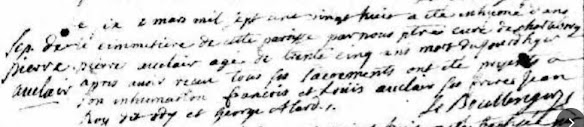 Le ix mars mil sept cens vingt huit a ete inhumé dans
Sep. de le cimmetiere de cette paroisse par nous ptre curé de charlesbourg
pierre pierre auclair agé de trente cinq ans mort dujourd'hyer
auclair apres avoir receu tous ses sacrements ont eté presents a
son inhumation francois et Louis auclair ses freres Jean
Roy dit Audy et George Alard.
Le Boullenger